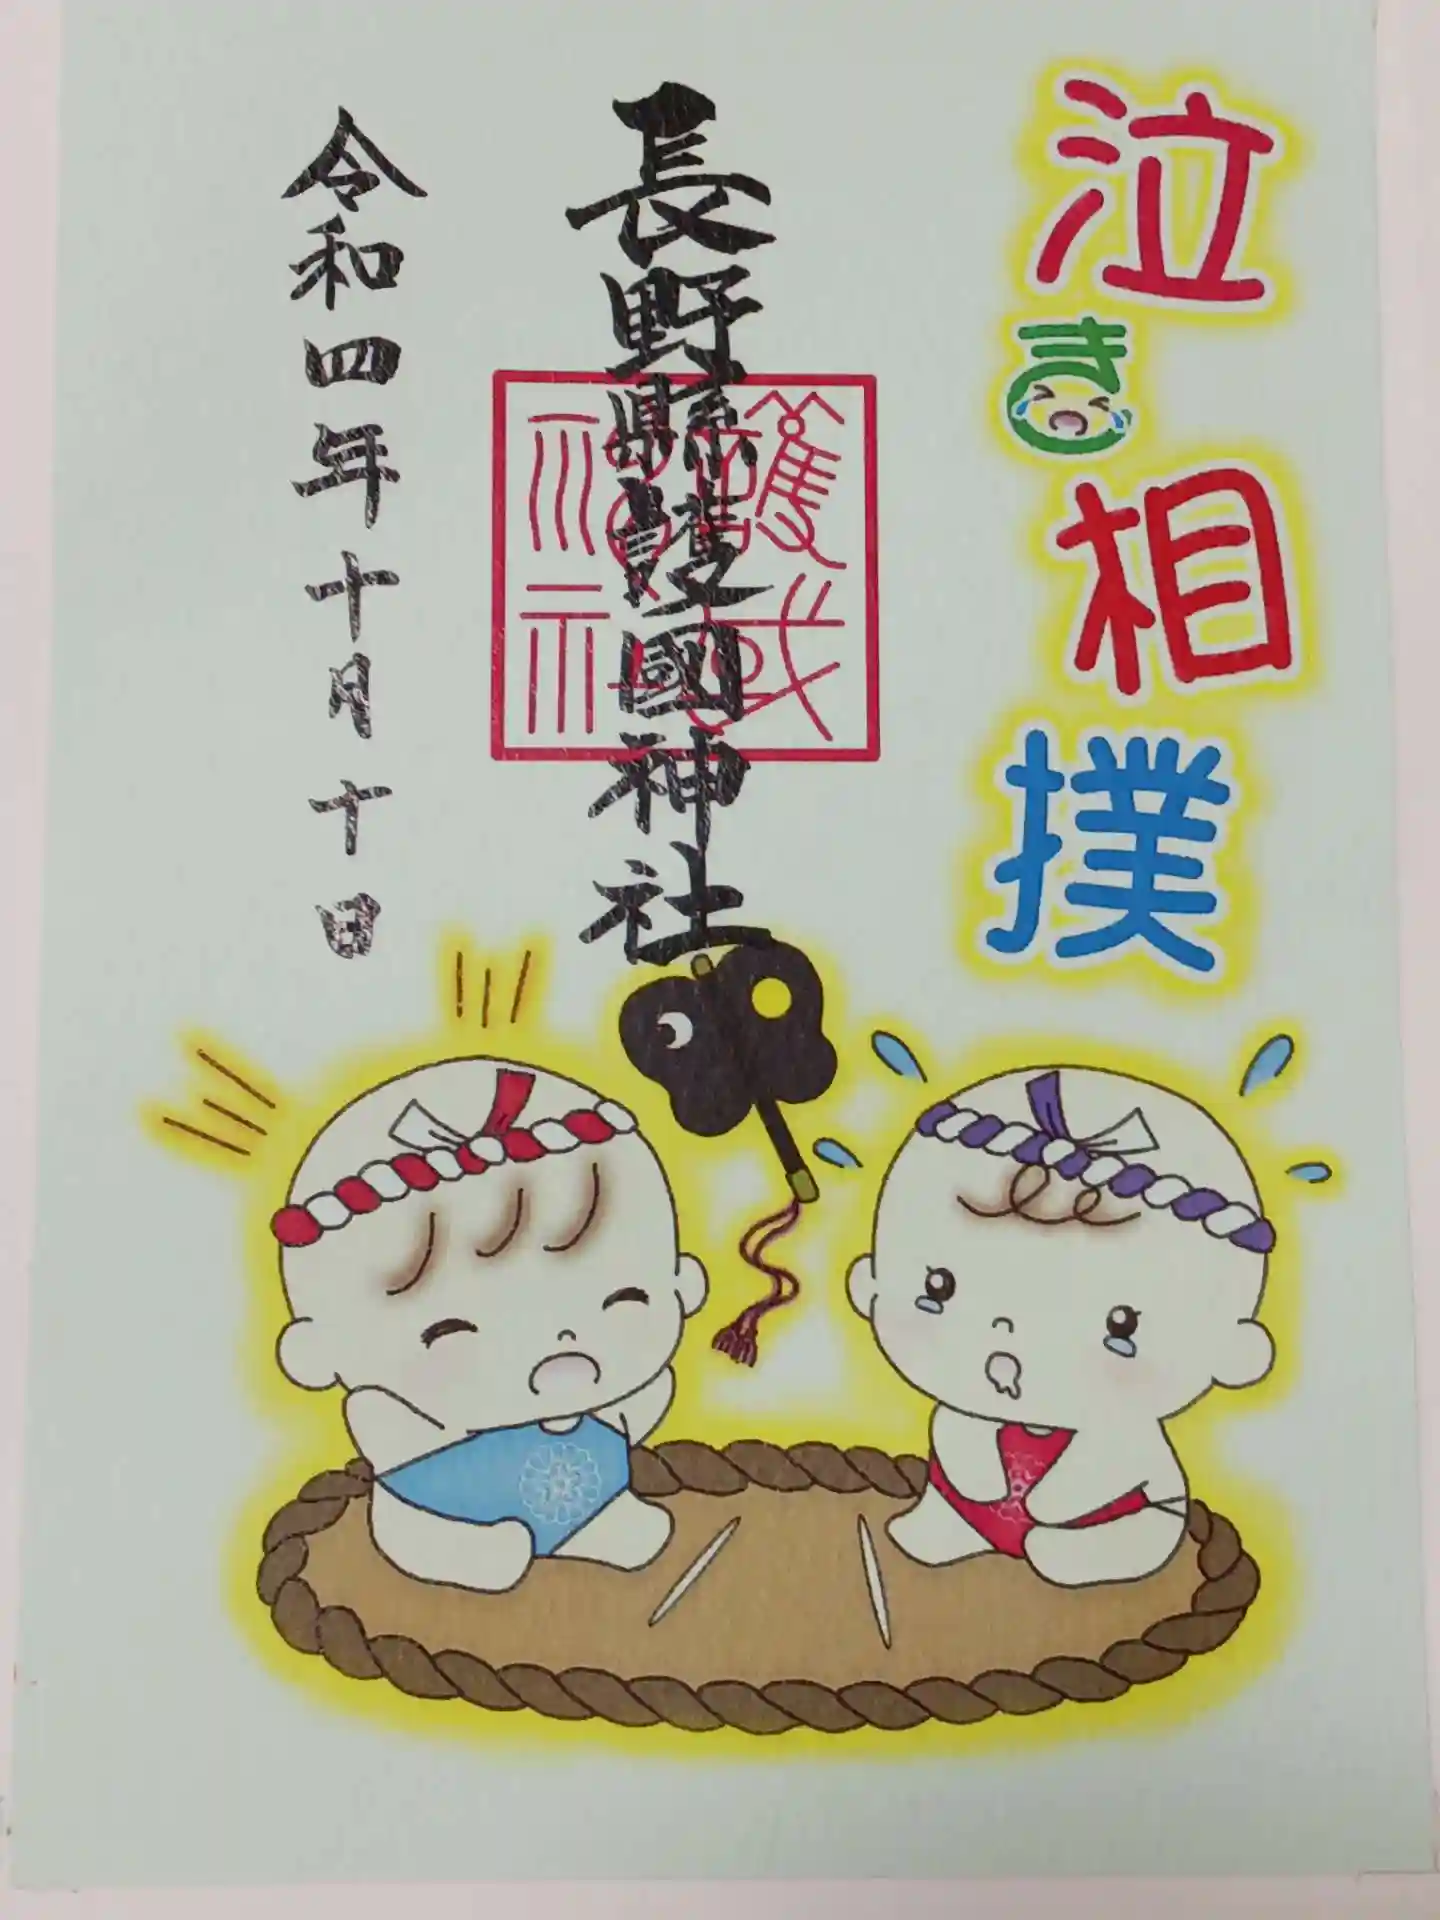 泣き相撲
長野縣護國神社
令和四年十月十日